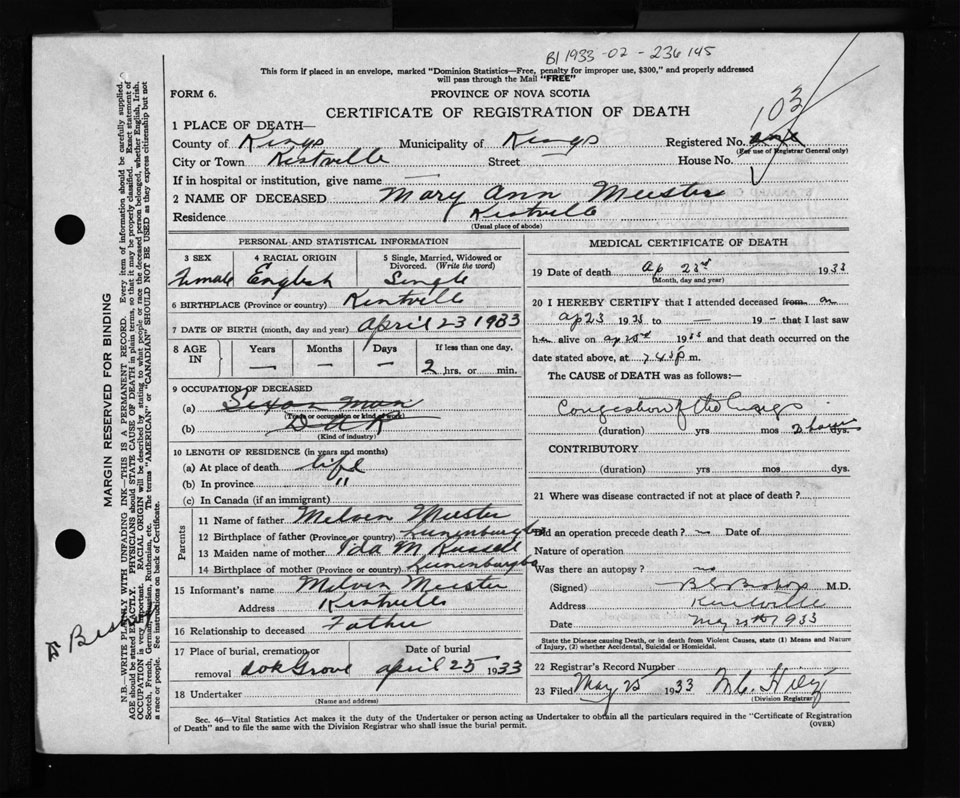 B1 1933-02-236145
This form if placed in an envelope, marked "Dominion Statistics—Free, penalty for improper use, $300," and properly addressed
will pass through the Mail "FREE"
FORM 6.
PROVINCE OF NOVA SCOTIA
103
CERTIFICATE OF REGISTRATION OF DEATH
1 PLACE OF DEATH—
County of Kings Municipality of Kings Registered No.
(For use of Registrar General only)
City or Town Kentville Street — House No.
If in hospital or institution, give name —
2 NAME OF DECEASED Mary Ann Meister
Residence Kentville
(Usual place of abode)
PERSONAL AND STATISTICAL INFORMATION
3 SEX 4 RACIAL ORIGIN 5 Single, Married, Widowed or
Divorced. (Write the word)
Female English Single
6 BIRTHPLACE (Province or country) Kentville
7 DATE OF BIRTH (month, day and year) April 23 1933
8 AGE IN Years Months Days If less than one day,
— — — 2 hrs. or min.
9 OCCUPATION OF DECEASED
(a)
(Trade or occupation or kind of work)
(b)
(Kind of industry)
10 LENGTH OF RESIDENCE (in years and months)
(a) At place of death life
(b) In province "
(c) In Canada (if an immigrant)
Parents
11 Name of father Melven Meister
12 Birthplace of father (Province or country) Lunenburg Co
13 Maiden name of mother Ida M Russell
14 Birthplace of mother (Province or country) Lunenburg Co
15 Informant's name Melven Meister
Address Kentville
16 Relationship to deceased Father
17 Place of burial, cremation or removal Oak Grove
Date of burial April 25 1933
18 Undertaker
(Name and address)
MEDICAL CERTIFICATE OF DEATH
19 Date of death Ap 23rd 1933
(Month, day and year)
20 I HEREBY CERTIFY that I attended deceased from on
Ap 23 1933 to — 19 — that I last saw
her alive on Ap 23rd 1933 and that death occurred on the
date stated above, at 7.45 p m.
The CAUSE of DEATH was as follows:—
Congestion of the Lungs
(duration) yrs mos 2 hours dys.
CONTRIBUTORY
(duration) yrs. mos. dys.
21 Where was disease contracted if not at place of death?
Did an operation precede death? — Date of
Nature of operation
Was there an autopsy? no
(Signed) B C Bishop M.D.
Address Kentville
Date May 1933
State the Disease causing Death, or in death from Violent Causes, state (1) Means and Nature
of Injury, (2) whether Accidental, Suicidal or Homicidal.
22 Registrar's Record Number
23 Filed May 25 1933
(Division Registrar)
Sec. 46—Vital Statistics Act makes it the duty of the Undertaker or person acting as Undertaker to obtain all the particulars required in the "Certificate of Registration
of Death" and to file the same with the Division Registrar who shall issue the burial permit.
(OVER)
MARGIN RESERVED FOR BINDING
N.B.—WRITE PLAINLY WITH UNFADING INK—THIS IS A PERMANENT RECORD. Every item of information should be carefully supplied.
AGE should be stated EXACTLY. PHYSICIANS should STATE CAUSE OF DEATH in plain terms, so that it may be properly classified. Exact statement of
OCCUPATION is very important. RACIAL ORIGIN will be described by stating to what people or race the deceased person belonged, whether English, Irish,
Scotch, French, German, Russian, Ruthenian, etc. The terms "AMERICAN" or "CANADIAN" SHOULD NOT BE USED as they express citizenship but not
a race or people. See instructions on back of Certificate.